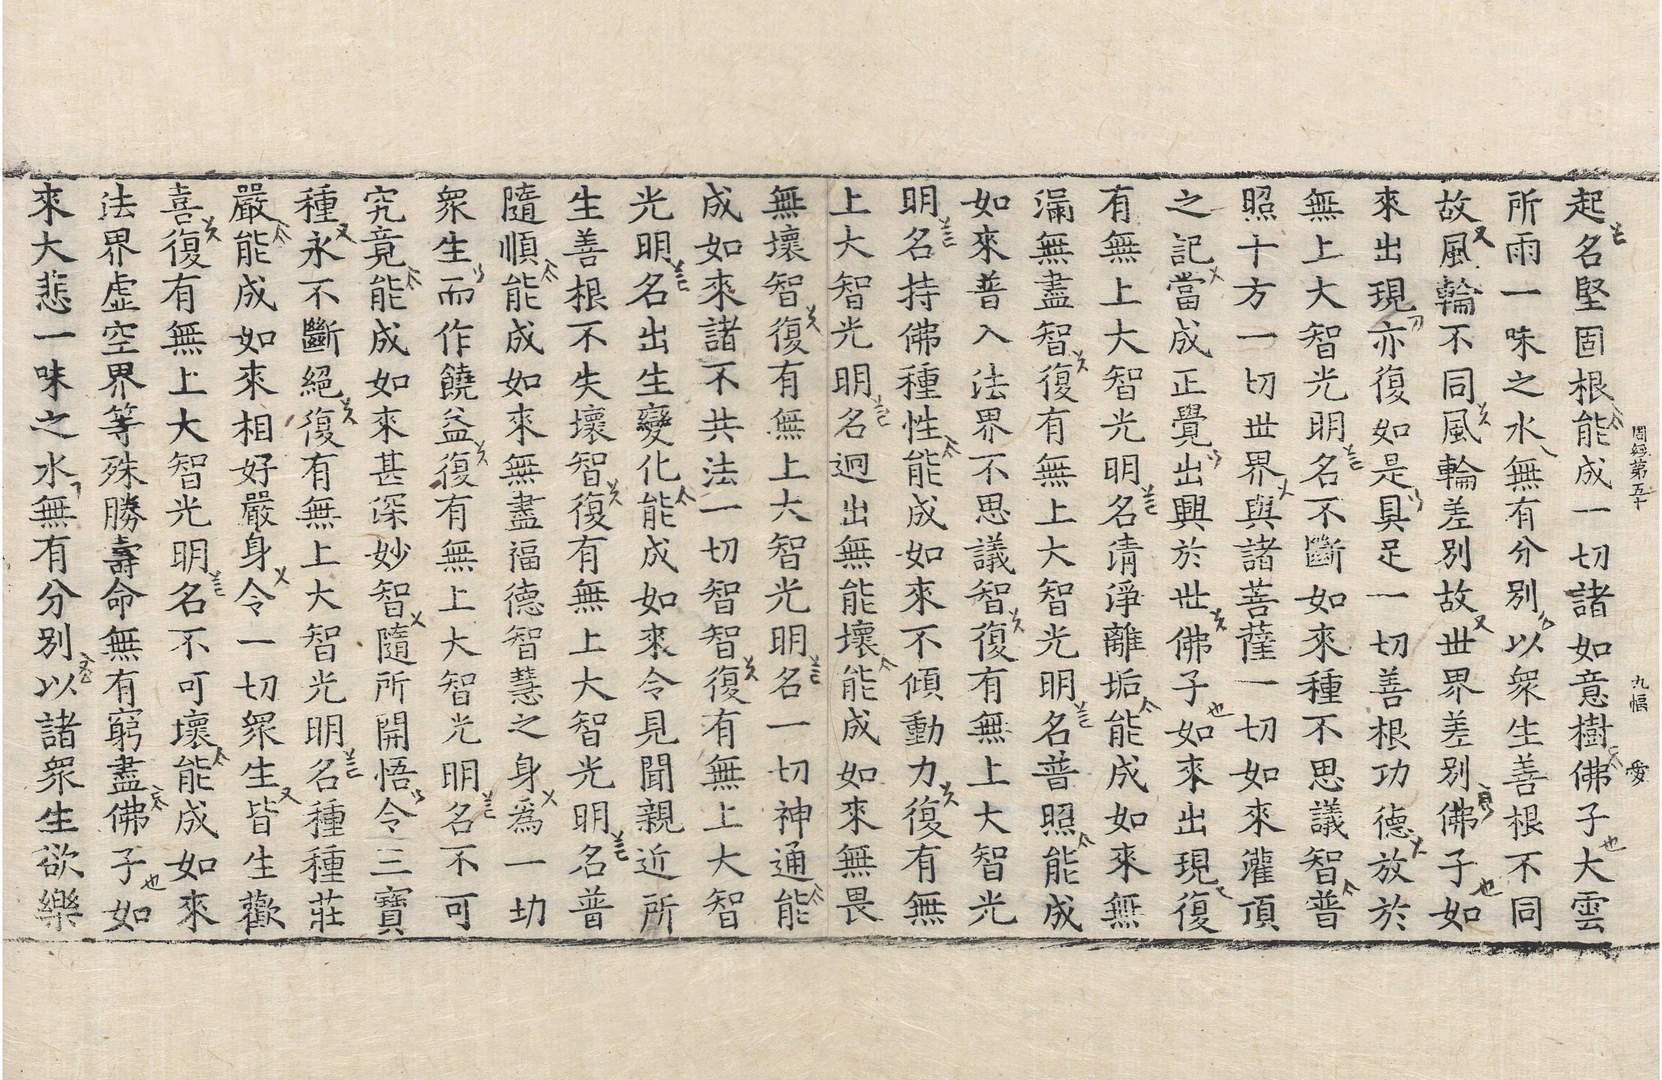 起名堅固根能成一切諸如意樹佛子大雲
所雨一味之水無有分別以衆生善根不同
故風輪不同風輪差別故世界差別佛子如
來出現亦復如是具足一切善根功德放於
無上大智光明名不斷如來種不思議智普
照十方一切世界與諸菩薩一切如來灌頂
之記當成正覺出興於世佛子如來出現復
有無上大智光明名清淨離垢能成如來無
漏無盡智復有無上大智光明名普照能成
如來普入法界不思議智復有無上大智光
明名持佛種性能成如來不傾動力復有無
上大智光明名迥出無能壞能成如來無畏
無壞智復有無上大智光明名一切神通能
成如來諸不共法一切智智復有無上大智
光明名出生變化能成如來令見聞親近所
生善根不失壞智復有無上大智光明名普
隨順能成如來無盡福德智慧之身爲一切
衆生而作饒益復有無上大智光明名不可
究竟能成如來甚深妙智隨所開悟令三寶
種永不斷絕復有無上大智光明名種種莊
嚴能成如來相好嚴身令一切衆生皆生歡
喜復有無上大智光明名不可壞能成如來
法界虛空界等殊勝壽命無有窮盡佛子如
來大悲一味之水無有分別以諸衆生欲樂